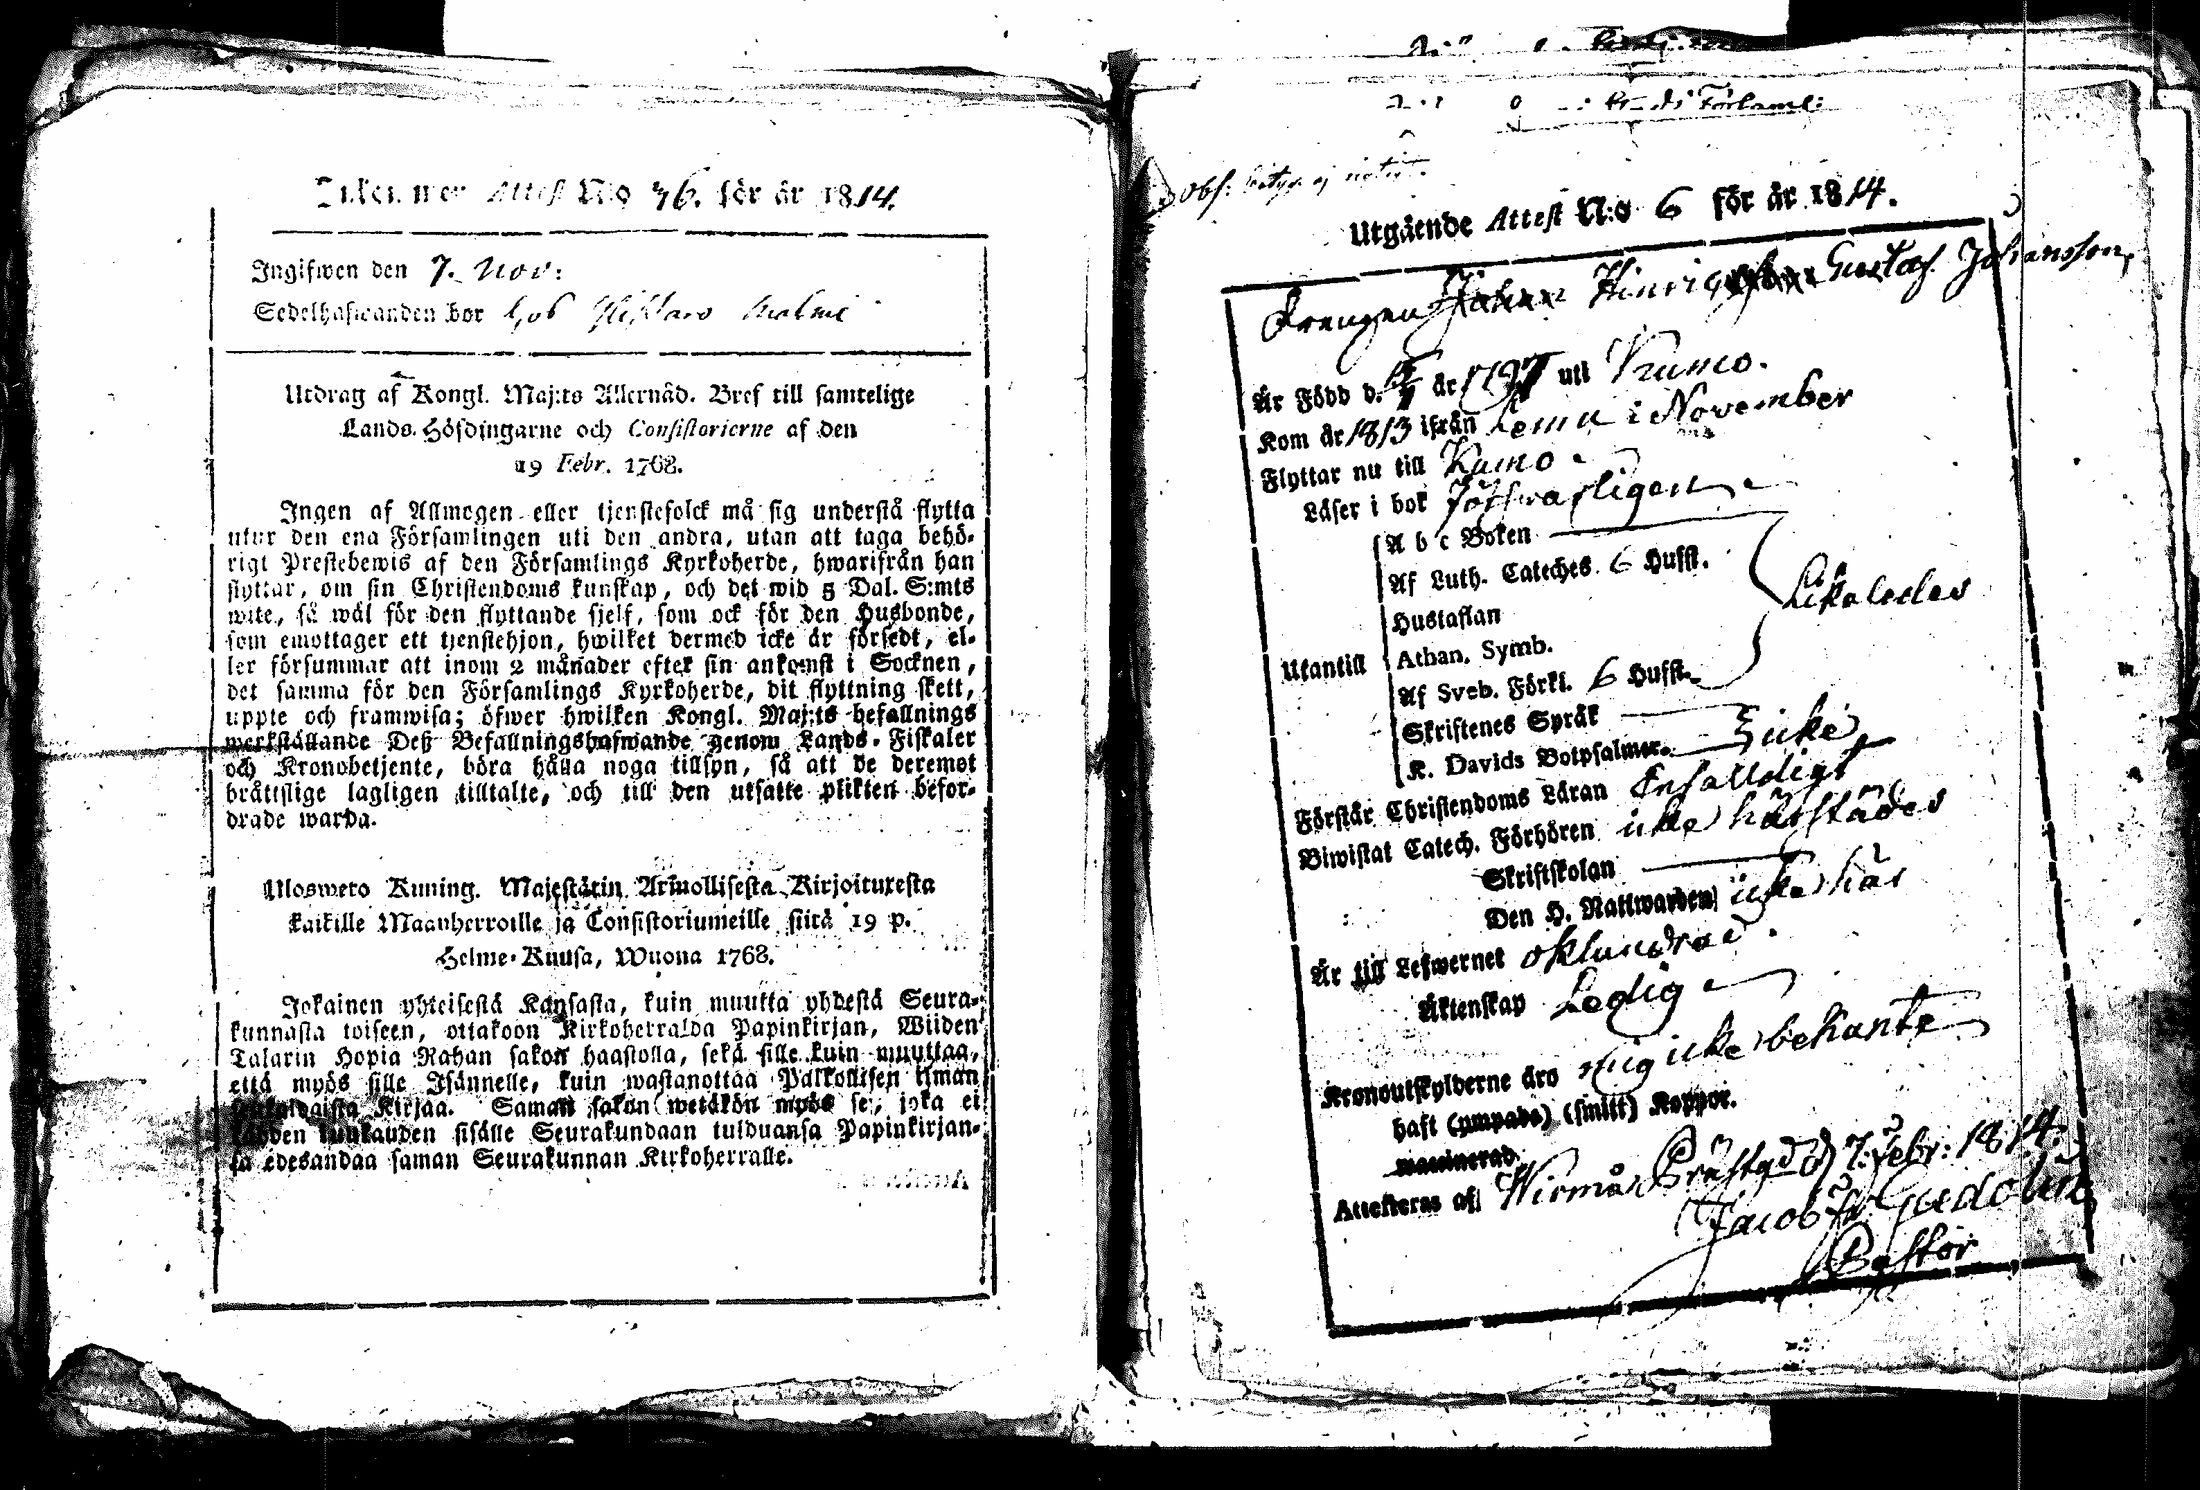 Attest N:o 36. för år 1814.
Ingifwen den 7. Nov:
Sedelhafwanden bor hos
Utdrag af Kongl. Maj:ts Allernåd. Bref till samtelige
Lands-Höfdingarne och Consistorierne af den
19 Febr. 1768.
Ingen af Allmogen eller tjenstefolck må sig understå flytta
utur den ena Församlingen uti den andra, utan att taga behö-
rigt Prestebewis af den Församlings Kyrkoherde, hwarifrån han
flyttar, om sin Christendoms kunskap, och det wid 5 Dal. S:mts
wite, så wäl för den flyttande sjelf, som ock för den Husbonde,
som emottager ett tjenstehjon, hwilket dermed icke är försedt, el-
ler försummar att inom 2 månader efter sin ankomst i Socknen,
det samma för den Församlings Kyrkoherde, dit flyttning skett,
uppte och framwisa; öfwer hwilken Kongl. Maj:ts befallnings
werkställande Deß Befallningshafwande genom Lands-Fiskaler
och Kronobetjente, böra hålla noga tillsyn, så att de deremot
bråttslige lagligen tilltalte, och till den utsatte plikten befor-
drade warda.
Ulosweto Kuning. Majestätin Armollisesta Kirjoituxesta
kaikille Maanherroille ja Consistoriumeille siitä 19 p.
Helme-Kuusa, Wuona 1768.
Jokainen yhteisestä Kansasta, kuin muutta yhdestä Seura-
kunnasta toiseen, ottakoon Kirkoherralda Papinkirjan, Wiiden
Talarin Hopia Rahan sakon haastolla, sekä sille kuin muuttaa,
että myös sille Isännelle, kuin wastanottaa Palkollisen ilman
Kirjaa. Saman sakon wetäkön myös se, joka ei
kahden kuukauden sisälle Seurakundaan tulduansa Papinkirjan-
sa edesandaa saman Seurakunnan Kirkoherralle.
Obs:
Utgående Attest N:o 6 för år 1814.
Drengen Hinric Gustaf Johansson,
Är Född d. år 1797 uti Kumo.
Kom år 1813 ifrån Lemu i November
Flyttar nu till Kumo
Läser i bok försvarligen
A b c Boken
Af Luth. Cateches. 6 Hufst.
Hustaflan
Utantill Athan. Symb.
Likaledes
Af Sveb. Förkl. 6 Hufst.
Skriftenes Språk
K. Davids Botpsalmer. icke
Förstår Christendoms Läran Enfalldigt
Biwistat Catech. Förhören icke härstädes
Skriftskolan
Den H. Nattwarden icke här
Är till Lefwernet oklandrad.
Äktenskap Ledig
Kronoutskylderne äro mig icke bekante
haft (ympade) (smitt) Koppor.
waccinerad.
Attesteras af Wirmo Prästgd d 7. Febr: 1814.
Jacob Gadolin
Pastor